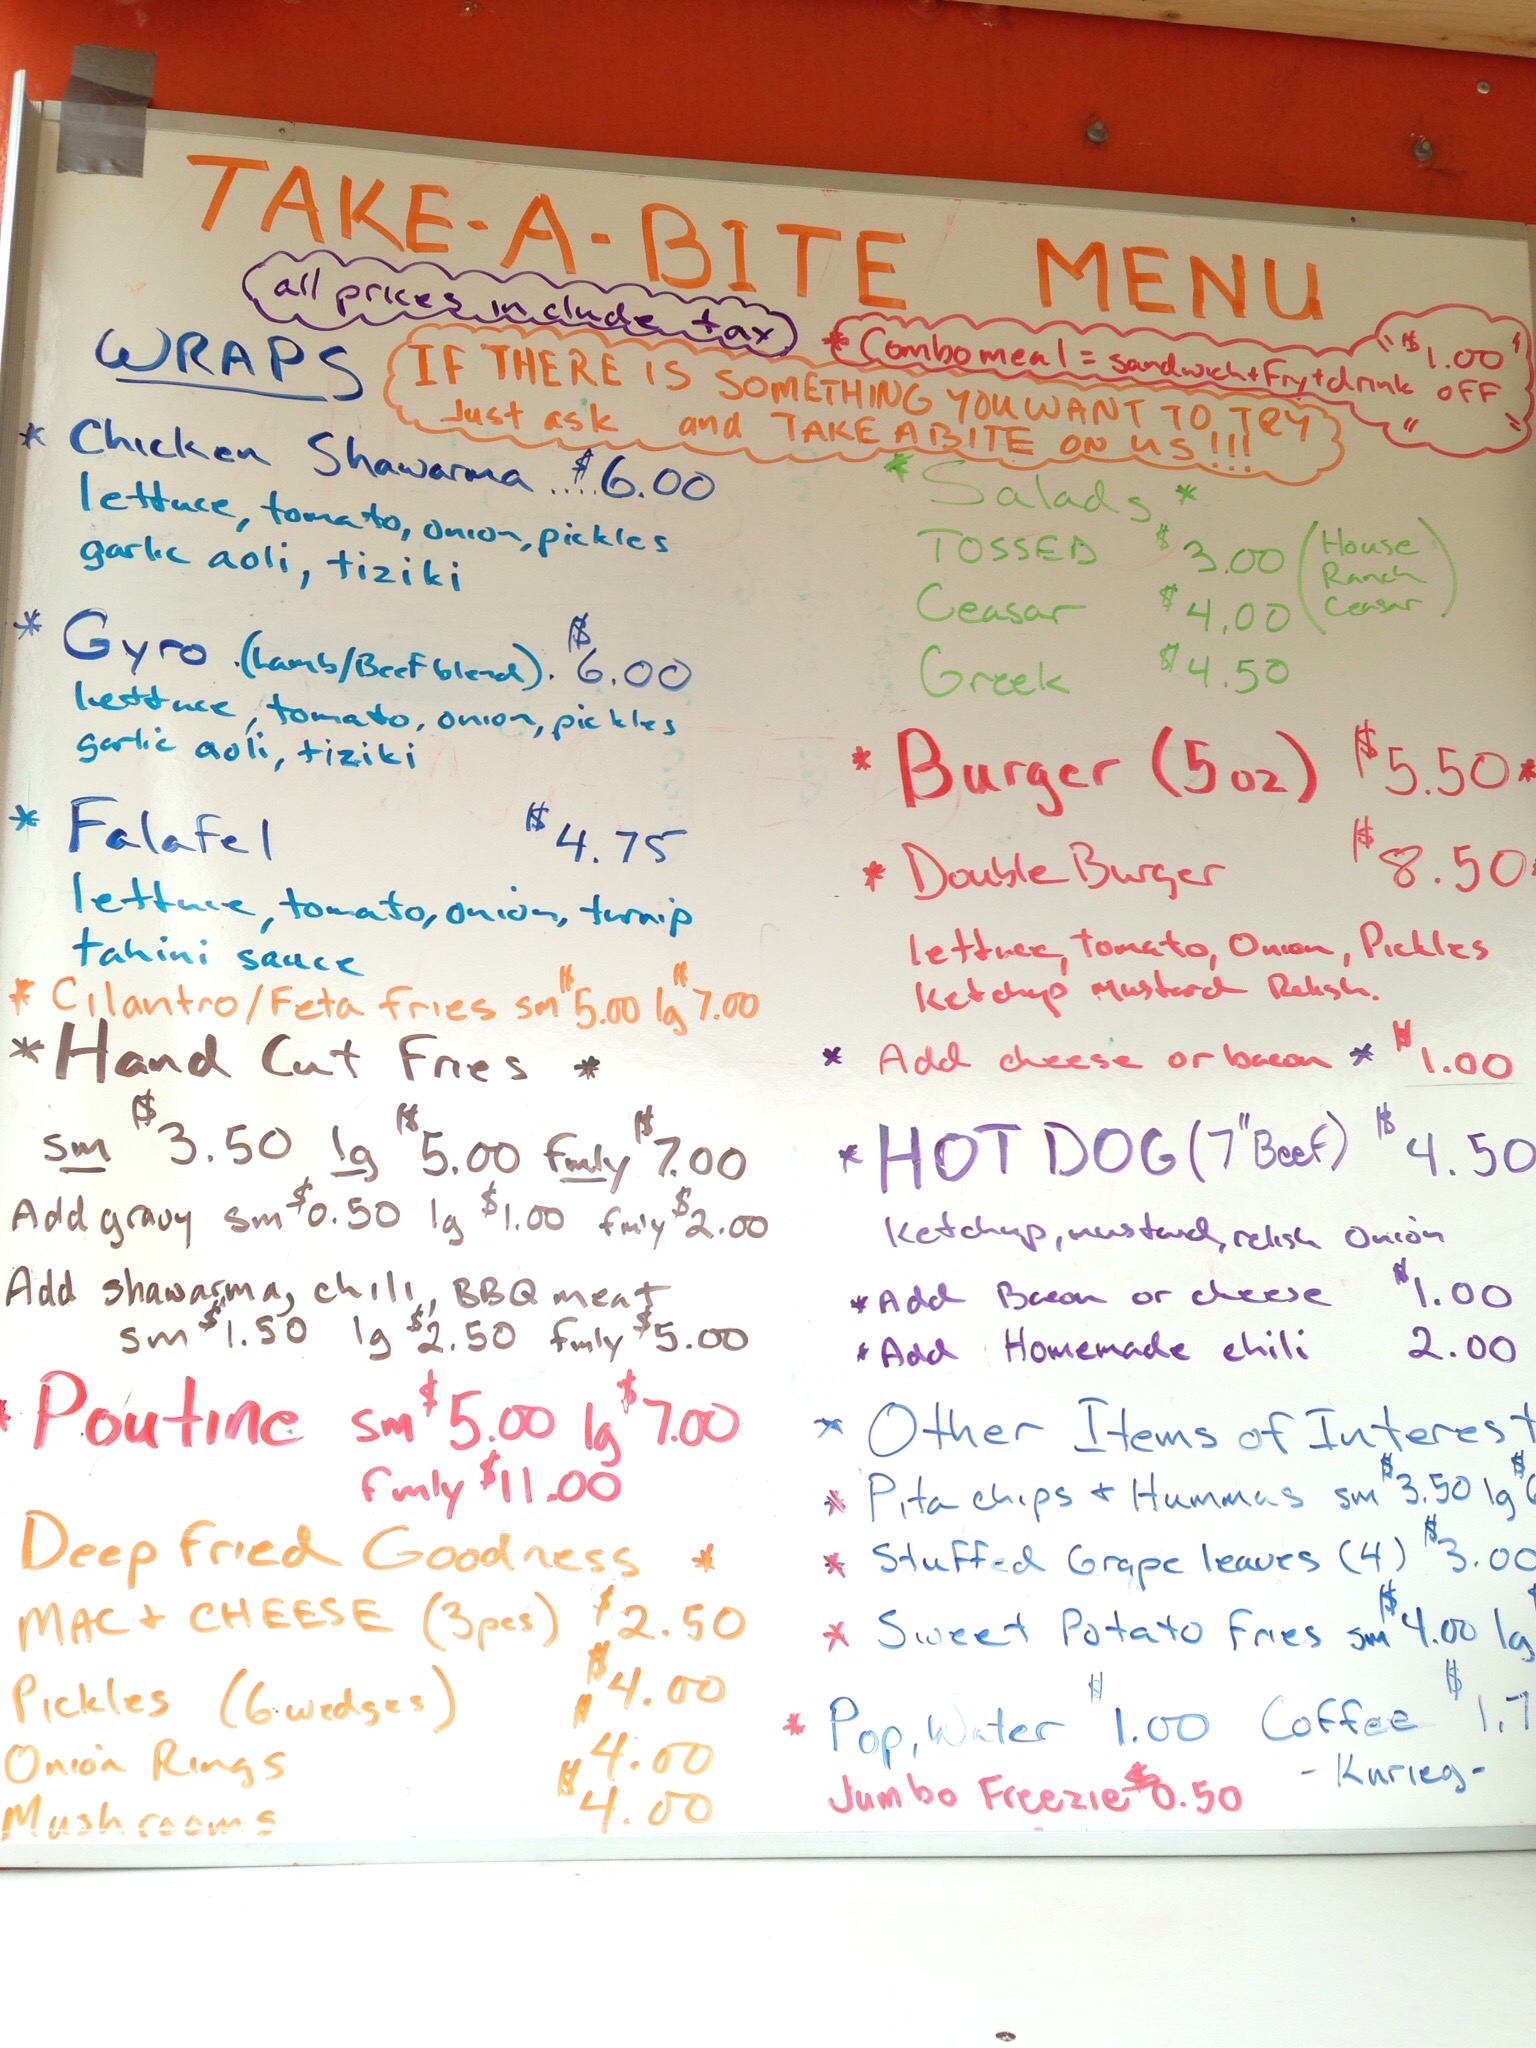 TAKE-A-BITE MENU
all prices include tax
* Combo meal = sandwich + Fry + drink "$1.00 OFF"
IF THERE IS SOMETHING YOU WANT TO TRY
Just ask and TAKE A BITE ON US!!!
WRAPS
* Chicken Shawarma .....$6.00
lettuce, tomato, onion, pickles
garlic aoli, tiziki
* Gyro (Lamb/Beef blend). $6.00
lettuce, tomato, onion, pickles
garlic aoli, tiziki
* Falafel $4.75
lettuce, tomato, onion, turnip
tahini sauce
* Cilantro/Feta fries sm $5.00 lg $7.00
* Hand Cut Fries *
sm $3.50 lg $5.00 fmly $7.00
Add gravy sm $0.50 lg $1.00 fmly $2.00
Add shawarma, chili, BBQ meat
sm $1.50 lg $2.50 fmly $5.00
* Poutine sm $5.00 lg $7.00
fmly $11.00
Deep fried Goodness *
MAC + CHEESE (3pcs) $2.50
Pickles (6 wedges) $4.00
Onion Rings $4.00
Mushrooms $4.00
* Salads *
TOSSED $3.00 (House
Ranch
Ceasar)
Ceasar $4.00
Greek $4.50
* Burger (5oz) $5.50 *
* Double Burger $8.50
lettuce, tomato, Onion, Pickles
Ketchup Mustard Relish.
* Add cheese or bacon * $1.00
* HOT DOG (7" Beef) $4.50
Ketchup, mustard, relish onion
* Add Bacon or cheese $1.00
* Add Homemade chili 2.00
* Other Items of Interest
* Pita chips + Hummas sm $3.50 lg $
* Stuffed Grape leaves (4) $3.00
* Sweet Potato Fries sm $4.00 lg
* Pop, Water $1.00 Coffee $1.7
- Kurieg -
Jumbo Freezie $0.50